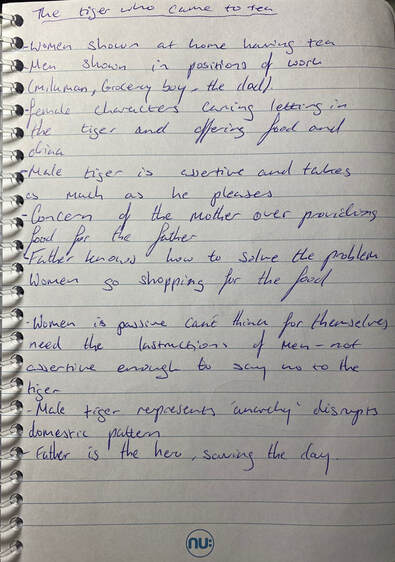 The tiger who came to tea
-Women shown at home having tea
-Men shown in positions of work
(milkman, Grocery boy, the dad).
-female characters caring letting in
the tiger and offering food and
china
-Male tiger is assertive and takes
as much as he pleases
-Concern of the mother over providing
food for the father
-Father knows how to solve the problem
Women go shopping for the food
-Women is passive can't think for themselves
need the instructions of men-not
assertive enough to say no to the
tiger
-Male tiger represents 'anarchy' disrupts
domestic pattern
- Father is the hero, saving the day.
nu: